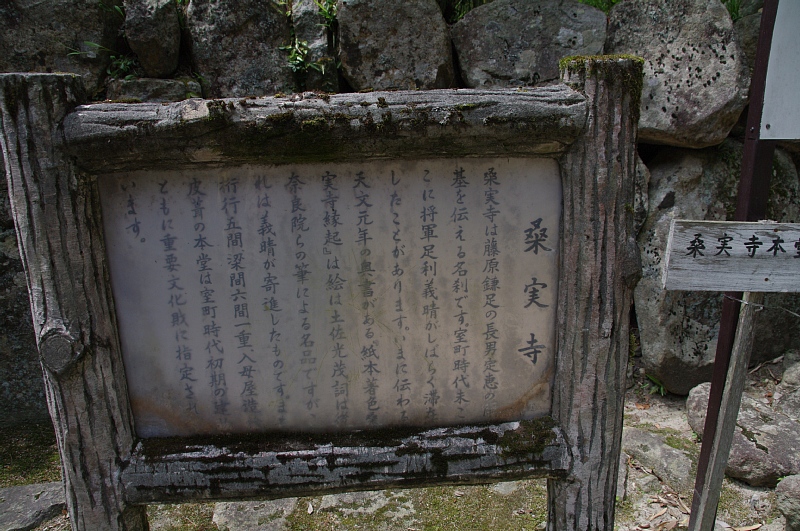 桑実寺
桑実寺は藤原鎌足の長男定恵の開
基を伝える名刹です。室町時代末、こ
こに将軍足利義晴がしばらく滞在
したことがあります。いまに伝わる
天文元年の奥書がある紙本著色『
実寺縁起』は絵は土佐光茂、詞は
奈良院らの筆による名品ですが、
れは義晴が寄進したものです。また
桁行五間梁間六間一重入母屋造
皮葺の本堂は室町時代初期の建
ともに重要文化財に指定され
います。
桑実寺本堂